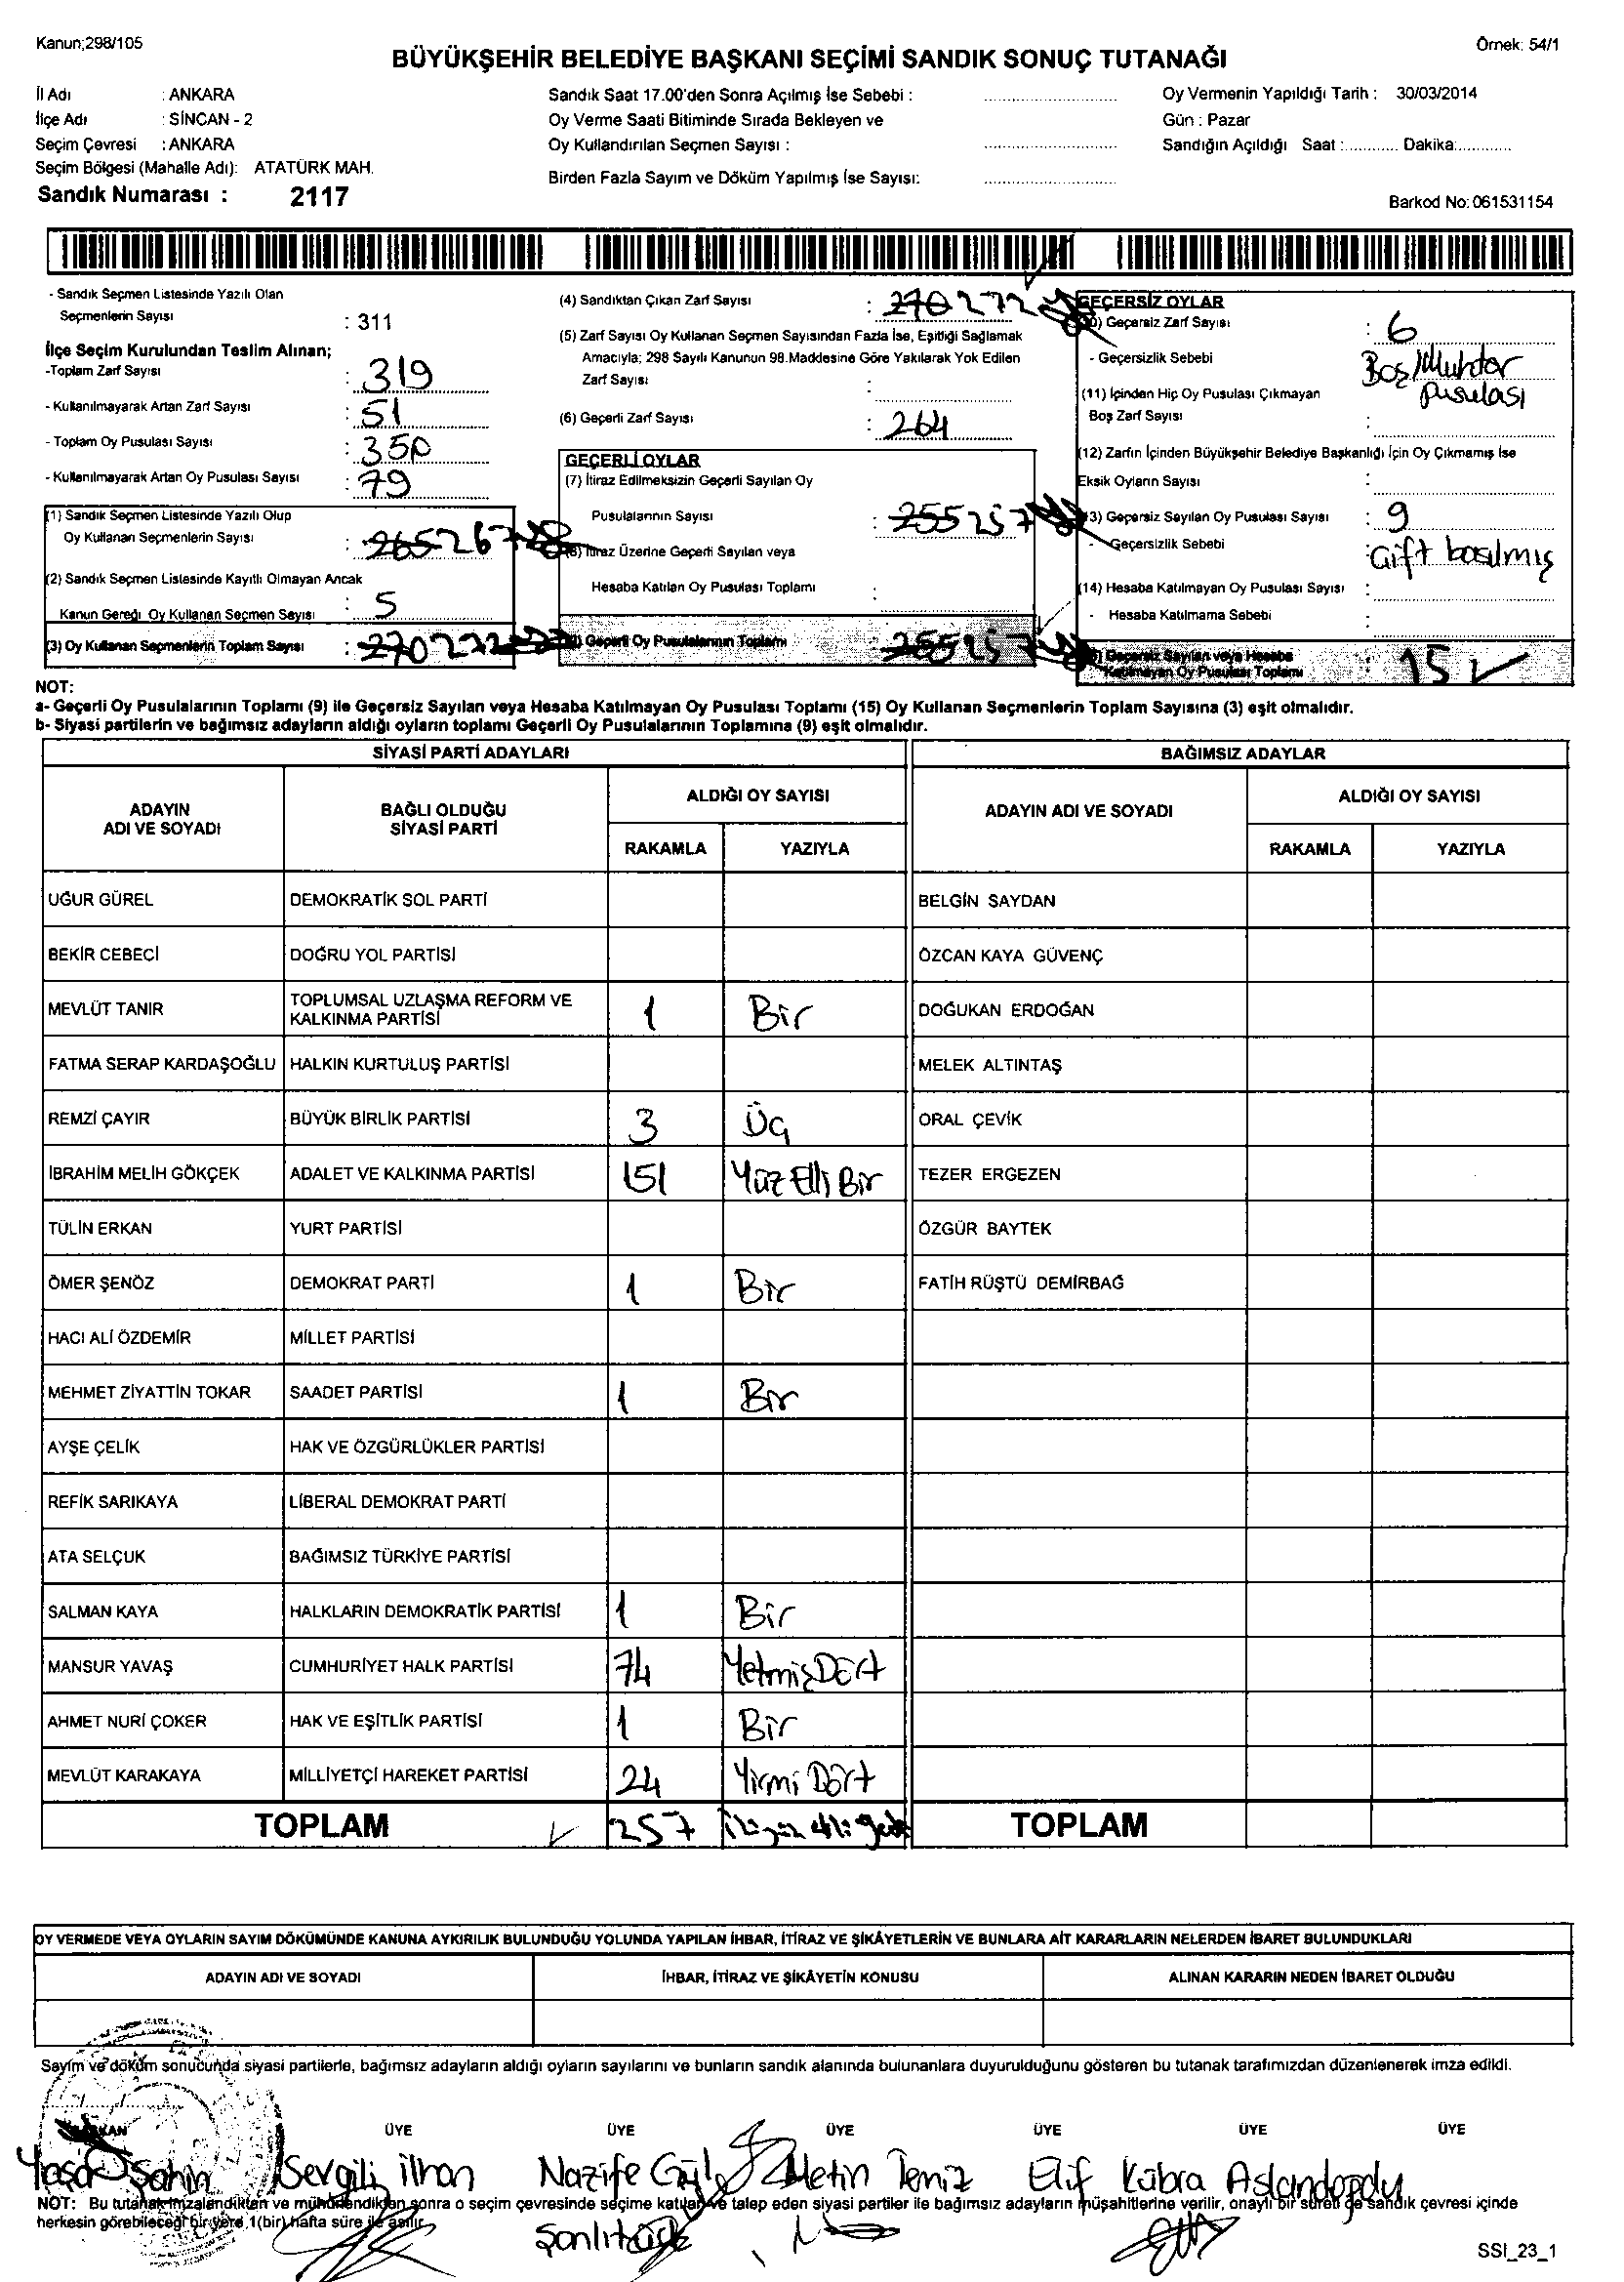 Kanun;298/105
Örnek: 54/1
BÜYÜKŞEHİR BELEDİYE BAŞKANI SEÇİMİ SANDIK SONUÇ TUTANAĞI
İl Adı : ANKARA
İlçe Adı : SİNCAN - 2
Seçim Çevresi : ANKARA
Seçim Bölgesi (Mahalle Adı): ATATÜRK MAH.
Sandık Numarası : 2117
Sandık Saat 17.00'den Sonra Açılmış İse Sebebi :
Oy Verme Saati Bitiminde Sırada Bekleyen ve
Oy Kullandırılan Seçmen Sayısı :
Birden Fazla Sayım ve Döküm Yapılmış İse Sayısı:
Oy Vermenin Yapıldığı Tarih : 30/03/2014
Gün : Pazar
Sandığın Açıldığı Saat :............ Dakika:............
Barkod No: 061531154
- Sandık Seçmen Listesinde Yazılı Olan
Seçmenlerin Sayısı : 311
İlçe Seçim Kurulundan Teslim Alınan;
-Toplam Zarf Sayısı : 319
- Kullanılmayarak Artan Zarf Sayısı : 51
- Toplam Oy Pusulası Sayısı : 350
- Kullanılmayarak Artan Oy Pusulası Sayısı : 79
(1) Sandık Seçmen Listesinde Yazılı Olup
Oy Kullanan Seçmenlerin Sayısı : 265 267
(2) Sandık Seçmen Listesinde Kayıtlı Olmayan Ancak
Kanun Gereği Oy Kullanan Seçmen Sayısı : 5
(3) Oy Kullanan Seçmenlerin Toplam Sayısı : 270 272
(4) Sandıktan Çıkan Zarf Sayısı : 270 272
(5) Zarf Sayısı Oy Kullanan Seçmen Sayısından Fazla İse, Eşitliği Sağlamak
Amacıyla; 298 Sayılı Kanunun 98.Maddesine Göre Yakılarak Yok Edilen
Zarf Sayısı :
(6) Geçerli Zarf Sayısı : 264
GEÇERLİ OYLAR
(7) İtiraz Edilmeksizin Geçerli Sayılan Oy
Pusulalarının Sayısı : 255 257
(8) İtiraz Üzerine Geçerli Sayılan veya
Hesaba Katılan Oy Pusulası Toplamı :
Geçerli Oy Pusulalarının Toplamı : 255 257
GEÇERSİZ OYLAR
Geçersiz Zarf Sayısı : 6
- Geçersizlik Sebebi Boş/Muhtar
pusulası
(11) İçinden Hiç Oy Pusulası Çıkmayan
Boş Zarf Sayısı :
(12) Zarfın İçinden Büyükşehir Belediye Başkanlığı İçin Oy Çıkmamış İse
Eksik Oyların Sayısı :
(13) Geçersiz Sayılan Oy Pusulası Sayısı : 9
- Geçersizlik Sebebi : Çift basılmış
(14) Hesaba Katılmayan Oy Pusulası Sayısı :
- Hesaba Katılmama Sebebi :
Geçersiz Sayılan veya Hesaba
Katılmayan Oy Pusulası Toplamı : 15
NOT:
a- Geçerli Oy Pusulalarının Toplamı (9) ile Geçersiz Sayılan veya Hesaba Katılmayan Oy Pusulası Toplamı (15) Oy Kullanan Seçmenlerin Toplam Sayısına (3) eşit olmalıdır.
b- Siyasi partilerin ve bağımsız adayların aldığı oyların toplamı Geçerli Oy Pusulalarının Toplamına (9) eşit olmalıdır.
SİYASİ PARTİ ADAYLARI
BAĞIMSIZ ADAYLAR
ADAYIN
ADI VE SOYADI
BAĞLI OLDUĞU
SİYASİ PARTİ
ALDIĞI OY SAYISI
RAKAMLA YAZIYLA
ADAYIN ADI VE SOYADI
ALDIĞI OY SAYISI
RAKAMLA YAZIYLA
UĞUR GÜREL DEMOKRATİK SOL PARTİ BELGİN SAYDAN
BEKİR CEBECİ DOĞRU YOL PARTİSİ ÖZCAN KAYA GÜVENÇ
MEVLÜT TANIR TOPLUMSAL UZLAŞMA REFORM VE
KALKINMA PARTİSİ 1 Bir DOĞUKAN ERDOĞAN
FATMA SERAP KARDAŞOĞLU HALKIN KURTULUŞ PARTİSİ MELEK ALTINTAŞ
REMZİ ÇAYIR BÜYÜK BİRLİK PARTİSİ 3 Üç ORAL ÇEVİK
İBRAHİM MELİH GÖKÇEK ADALET VE KALKINMA PARTİSİ 151 Yüz Elli Bir TEZER ERGEZEN
TÜLİN ERKAN YURT PARTİSİ ÖZGÜR BAYTEK
ÖMER ŞENÖZ DEMOKRAT PARTİ 1 Bir FATİH RÜŞTÜ DEMİRBAĞ
HACI ALİ ÖZDEMİR MİLLET PARTİSİ
MEHMET ZİYATTİN TOKAR SAADET PARTİSİ 1 Bir
AYŞE ÇELİK HAK VE ÖZGÜRLÜKLER PARTİSİ
REFİK SARIKAYA LİBERAL DEMOKRAT PARTİ
ATA SELÇUK BAĞIMSIZ TÜRKİYE PARTİSİ
SALMAN KAYA HALKLARIN DEMOKRATİK PARTİSİ 1 Bir
MANSUR YAVAŞ CUMHURİYET HALK PARTİSİ 74 Yetmiş Dört
AHMET NURİ ÇOKER HAK VE EŞİTLİK PARTİSİ 1 Bir
MEVLÜT KARAKAYA MİLLİYETÇİ HAREKET PARTİSİ 24 Yirmi Dört
TOPLAM 257 İkiyüz elli yedi TOPLAM
OY VERMEDE VEYA OYLARIN SAYIM DÖKÜMÜNDE KANUNA AYKIRILIK BULUNDUĞU YOLUNDA YAPILAN İHBAR, İTİRAZ VE ŞİKÂYETLERİN VE BUNLARA AİT KARARLARIN NELERDEN İBARET BULUNDUKLARI
ADAYIN ADI VE SOYADI İHBAR, İTİRAZ VE ŞİKÂYETİN KONUSU ALINAN KARARIN NEDEN İBARET OLDUĞU
Sayım ve döküm sonucunda siyasi partilerle, bağımsız adayların aldığı oyların sayılarını ve bunların sandık alanında bulunanlara duyurulduğunu gösteren bu tutanak tarafımızdan düzenlenerek imza edildi.
ÜYE ÜYE ÜYE ÜYE ÜYE ÜYE
Yaşar Şahin Sevgili İlhan Nazife Metin Temiz Elif Kübra Aslandoğdu
NOT: Bu tutanak imzalandıktan ve mühürlendikten sonra o seçim çevresinde seçime katılan ve talep eden siyasi partiler ile bağımsız adayların müşahitlerine verilir, onaylı bir sureti de sandık çevresi içinde
herkesin görebileceği bir yere 1(bir) hafta süre ile asılır.
SSI_23_1